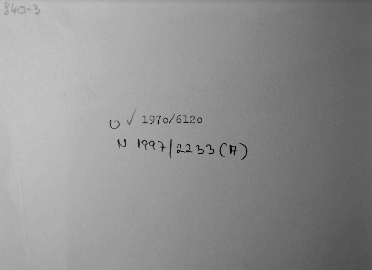 840-3
O ✓ 1970/6120
N 1997/2233(A)